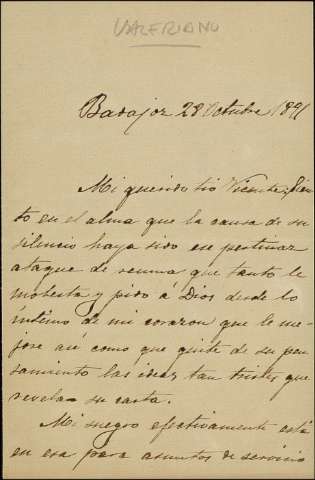 VALERIANO
Badajoz 28 Octubre 1891
Mi querido tio Vicente: Sien
to en el alma que la causa de su
silencio haya sido un pertinaz
ataque de reuma que tanto le
molesta y pido á Dios desde lo
íntimo de mi corazon que le me-
jore asi como que quite de su pen
samiento las ideas tan tristes que
revela su carta.
Mi suegro efectivamente está
en esa para asuntos de servicio